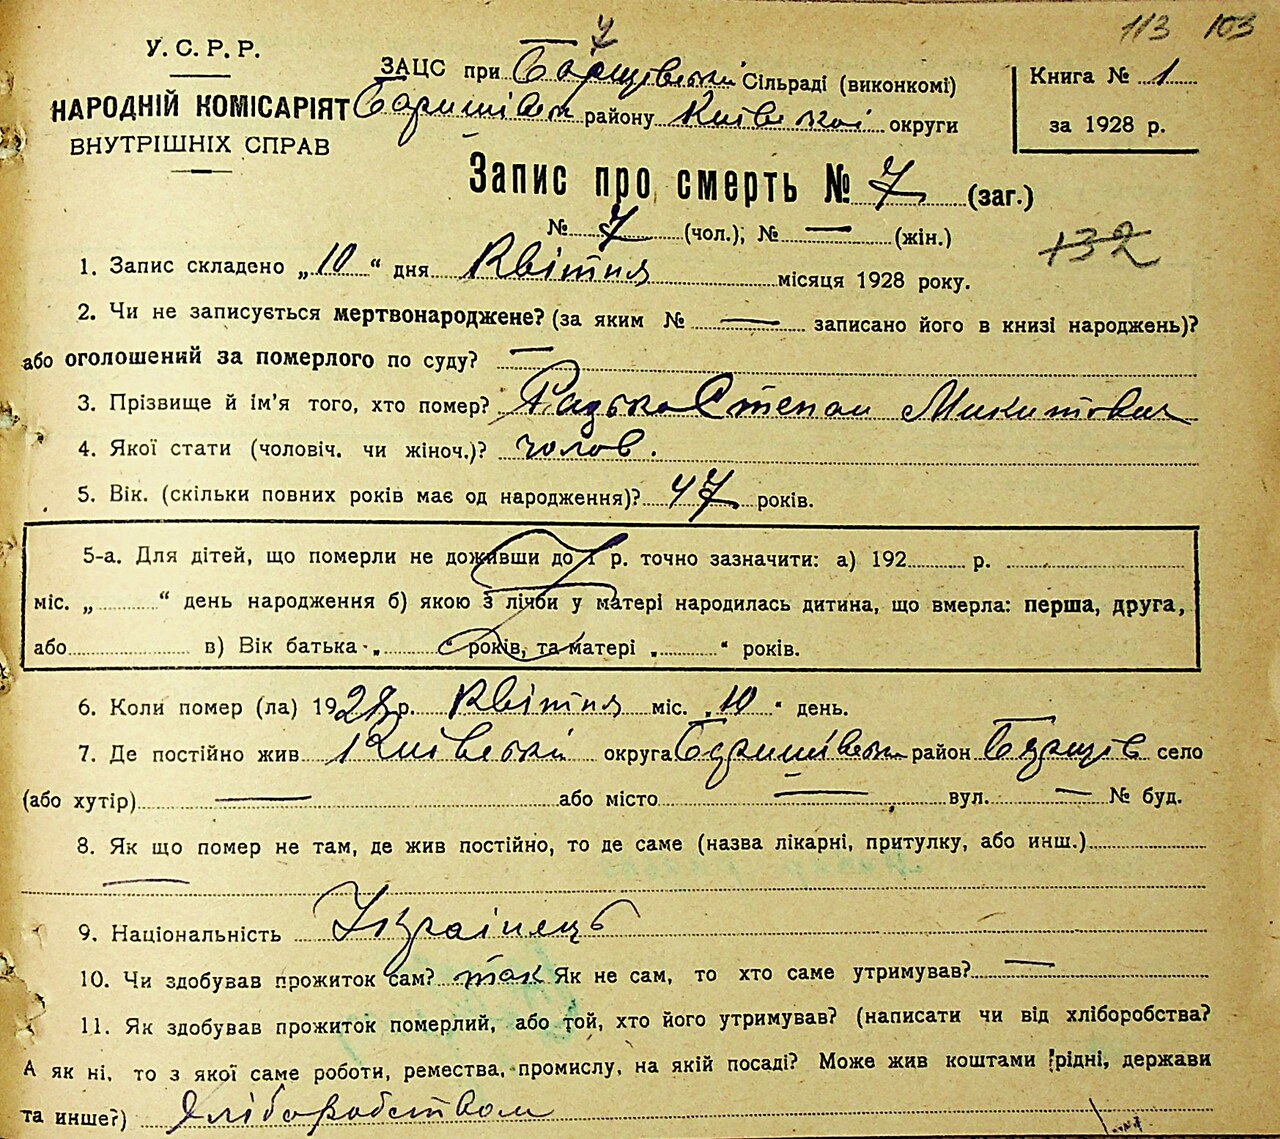 113 103
У. С. Р. Р.
НАРОДНІЙ КОМІСАРІЯТ
ВНУТРІШНІХ СПРАВ
ЗАЦС при Борщівській Сільраді (виконкомі)
Баришівськ району Київської округи
Книга № 1
за 1928 р.
Запис про смерть № 7 (заг.)
№ 7 (чол.); № — (жін.)
132
1. Запис складено „10“ дня Квітня місяця 1928 року.
2. Чи не записується мертвонароджене? (за яким № — записано його в книзі народжень)?
або оголошений за померлого по суду? —
3. Прізвище й ім'я того, хто помер? Радько Степан Микитович
4. Якої стати (чоловіч. чи жіноч.)? чолов.
5. Вік. (скільки повних років має од народження)? 47 років.
5-а. Для дітей, що померли не доживши до 1 р. точно зазначити: а) 192 р.
міс. „ “ день народження б) якою з лічби у матері народилась дитина, що вмерла: перша, друга,
або в) Вік батька „ “ років, та матері „ “ років.
6. Коли помер (ла) 1928 р. Квітня міс. „10“ день.
7. Де постійно жив Київській округа Баришівськ район Борщів село
(або хутір) — або місто — вул. — № буд.
8. Як що помер не там, де жив постійно, то де саме (назва лікарні, притулку, або инш.)
—
9. Національність Українець
10. Чи здобував прожиток сам? так Як не сам, то хто саме утримував? —
11. Як здобував прожиток померлий, або той, хто його утримував? (написати чи від хліборобства?
А як ні, то з якої саме роботи, ремества, промислу, на якій посаді? Може жив коштами рідні, держави
та инше?) Хліборобством